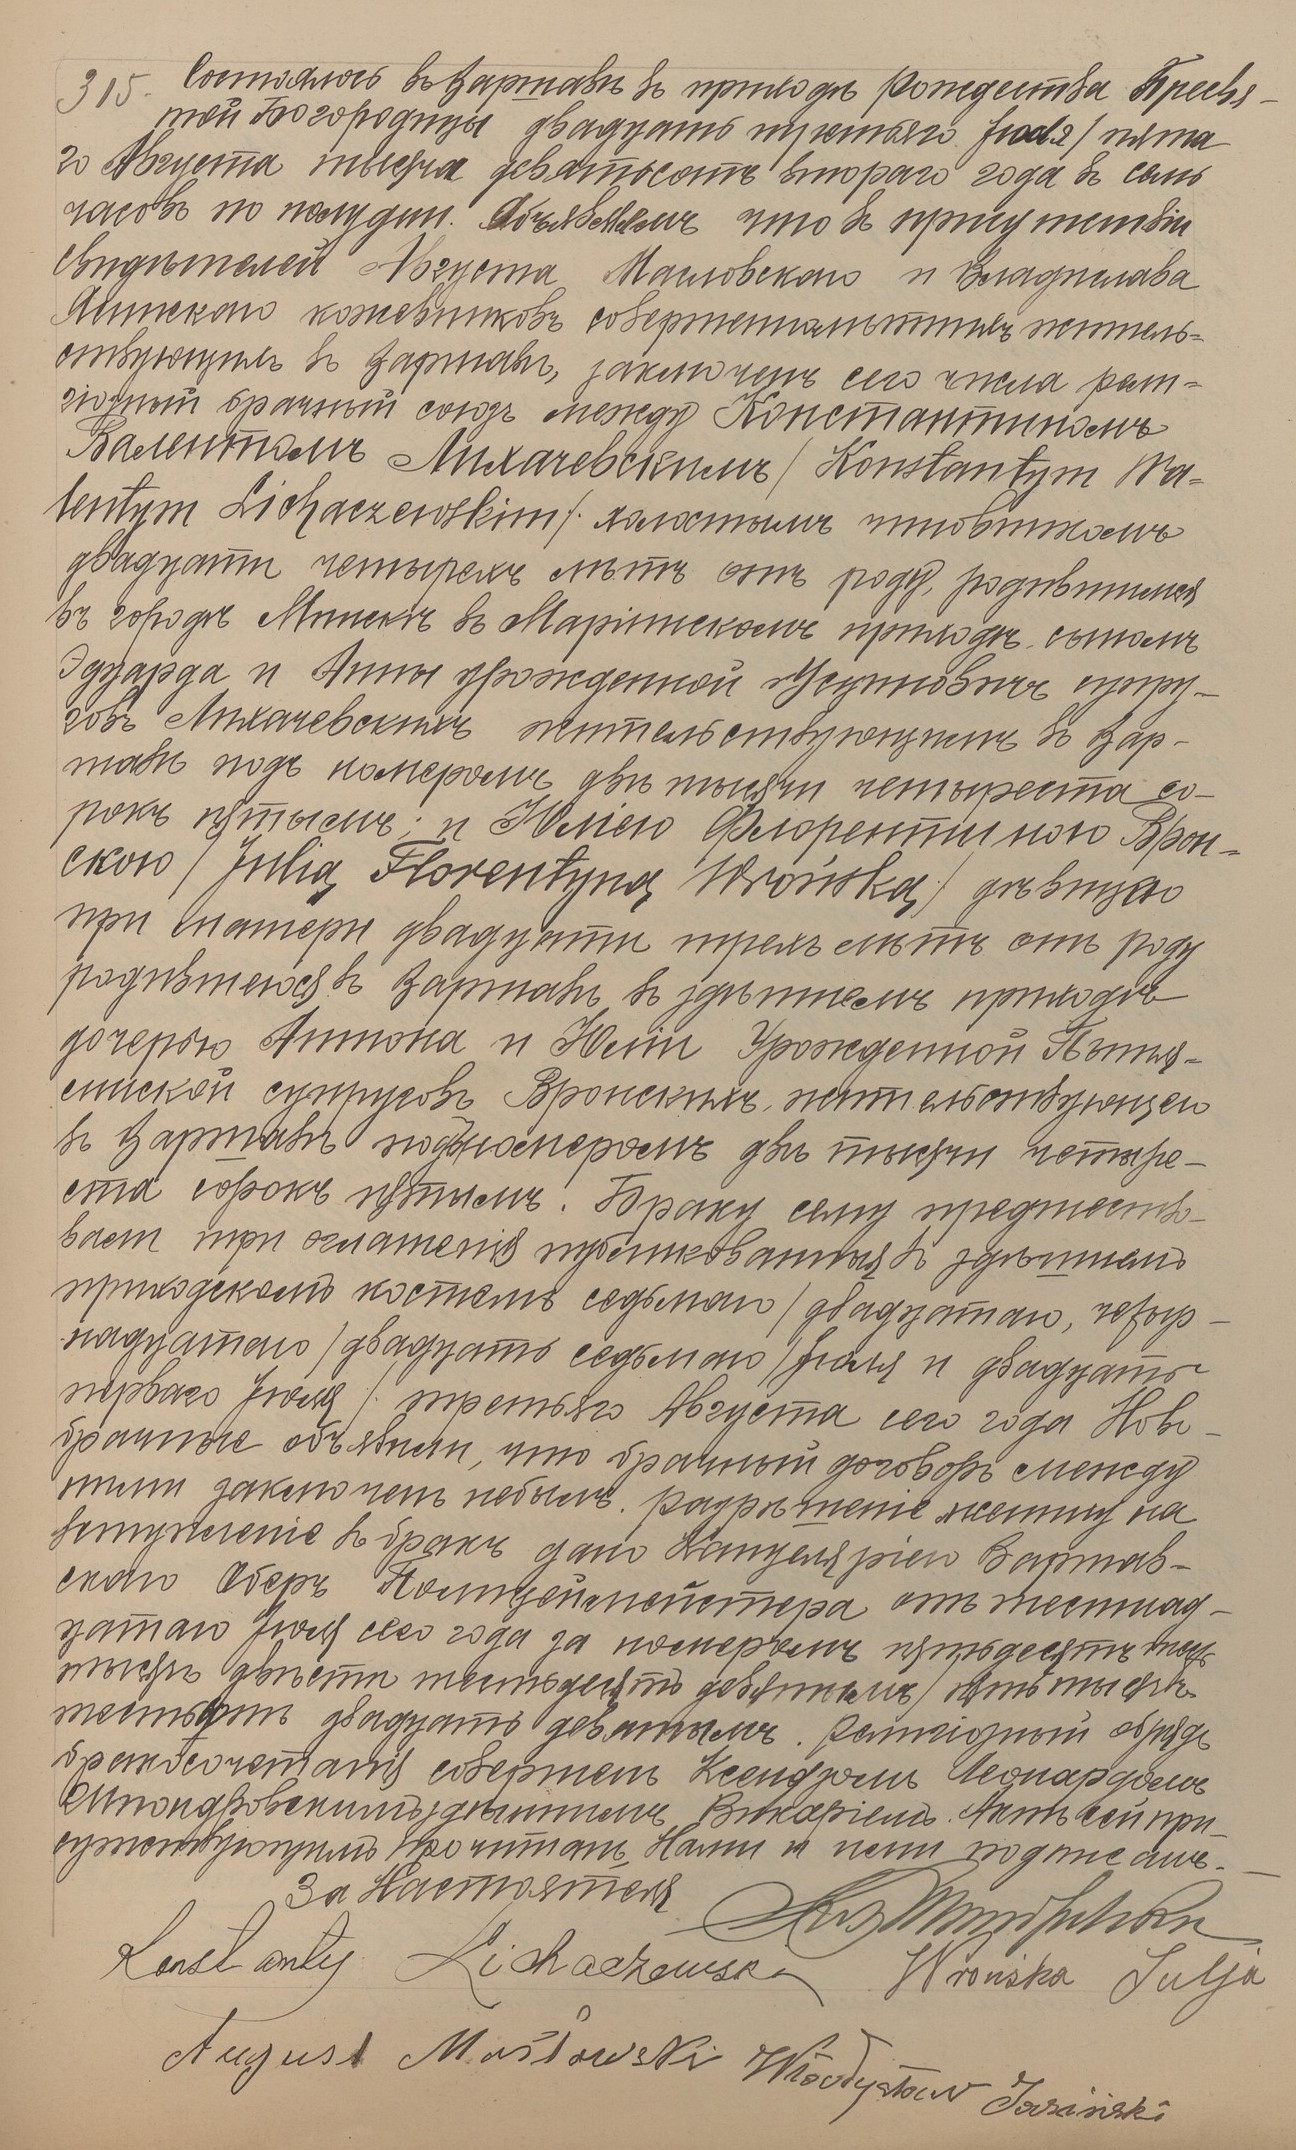 315. Состоялось въ Варшавѣ въ приходѣ Рождества Пресвя-
той Богородицы двадцать третьяго Іюля / пята
го Августа тысяча девятьсотъ втораго года въ семь
часовъ по полудни. Объявляемъ что въ присутствіи
свидѣтелей Августа Масловскаго и Владислава
Ясинскаго кожевниковъ совершеннолѣтнихъ житель=
ствующихъ въ Варшавѣ, заключенъ сего числа рели=
гіозный брачный союзъ между Константиномъ
Валентымъ Лихачевскимъ / Konstantym Wa=
lentym Lichaczewskim / холостымъ чиновникомъ
двадцати четырехъ лѣтъ отъ роду, родившимся
въ городѣ Минскѣ въ Маріинскомъ приходѣ сыномъ
Эдуарда и Анны урожденной супру-
говъ Лихачевскихъ жительствующимъ въ Вар-
шавѣ подъ номеромъ двѣ тысячи четыреста со-
рокъ пятымъ; и Юліею Флорентиною Врон=
скою / Julią Florentyną Wrońską / дѣвицею
при матери двадцати трехъ лѣтъ отъ роду
родившеюся въ Варшавѣ въ здѣшнемъ приходѣ
дочерью Антона и Юліи Урожденной
супруговъ Вронскихъ, жительствующею
въ Варшавѣ подъ номеромъ двѣ тысячи четыре-
ста сорокъ пятымъ. Браку сему предшество-
вали три оглашенія публикованныя въ здѣшнемъ
приходскомъ костелѣ седьмаго / двадцатаго, четыр-
надцатаго / двадцать седьмаго / Іюля и двадцать
перваго Іюля / третьяго Августа сего года Ново-
брачные объявили, что брачный договоръ между
ними заключенъ небылъ. Разрѣшеніе жениху на
вступленіе въ бракъ дано Канцеляріею Варшав-
скаго Оберъ Полицеймейстера отъ шестнад-
цатаго Іюля сего года за номеромъ пятьдесятъ
тысячъ двѣсти шестьдесятъ девятымъ / пять тысячъ
шестьсотъ двадцать девятымъ. Религіозный обрядъ
бракосочетанія совершенъ Ксендзомъ Леонардомъ
здѣшнимъ Викаріемъ. Актъ сей при-
сутствующимъ прочитанъ, Нами и ними подписанъ.
За Настоятеля
Konstanty Lichaczewski Wrońska Julja
August Masłowski Władysław Jasiński